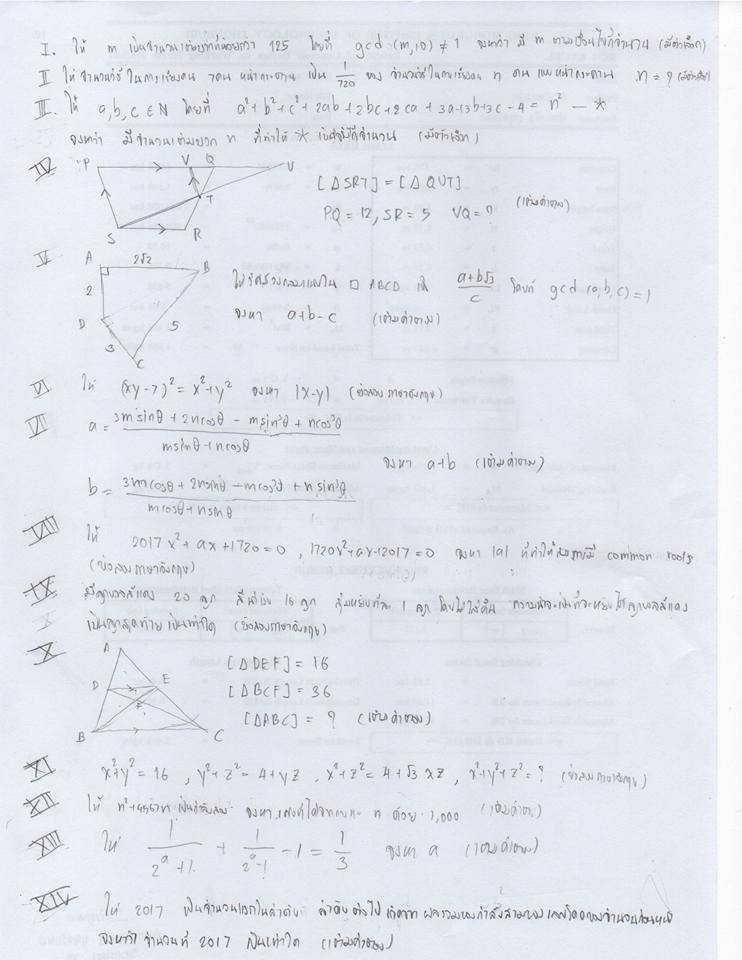 I. ให้ m เป็นจำนวนเต็มบวกที่น้อยกว่า 125 โดยที่ gcd (m,10) ≠ 1 จงหาว่า มี m ตามเงื่อนไขกี่จำนวน (มีตัวเลือก)
II ให้ จำนวนวิธี ในการเรียงคน 7คน หน้ากระดาน เป็น 1/720 ของ จำนวนวิธีในการเรียงคน n คน แบบหน้ากระดาน n = ? (มีตัวเลือก)
III. ให้ a,b,c ∈ N โดยที่ a²+b²+c²+2ab+2bc+2ca+3a+3b+3c-4 = n² — *
จงหาว่า มีจำนวนเต็มบวก n ที่ทำให้ * เป็นจริงกี่จำนวน (มีตัวเลือก)
IV
P V Q U
T
S R
[ΔSRT] = [ΔQUT]
PQ = 12, SR = 5 VQ = ? (เติมคำตอบ)
V
A 2√2 B
2
D 5
3
C
ให้ □ ABCD คือ (a+b√3)/c โดยที่ gcd (a,b,c) = 1
จงหา a+b-c (เติมคำตอบ)
VI ให้ (xy-7)² = x²+y² จงหา |x-y| (ข้อสอบภาษาอังกฤษ)
VII a = (3msinθ + 2ncosθ - msin³θ + ncos³θ)/(msinθ+ncosθ)
จงหา a+b (เติมคำตอบ)
b = (3mcosθ + 2nsinθ - mcos³θ + nsin³θ)/(mcosθ+nsinθ)
VIII ให้ 2017x²+ax+1720=0 , 1720x²+ax+2017=0 จงหา |a| ที่ทำให้สมการมี common roots
(ข้อสอบภาษาอังกฤษ)
IX มีลูกบอลสีแดง 20 ลูก สีน้ำเงิน 16 ลูก สุ่มหยิบทีละ 1 ลูก โดยไม่ใส่คืน ความน่าจะเป็นที่จะหยิบได้ลูกบอลสีแดง
เป็นลูกสุดท้าย เป็นเท่าใด (ข้อสอบภาษาอังกฤษ)
X
A
D E
F
B C
[ΔDEF] = 16
[ΔBCF] = 36
[ΔABC] = ? (เติมคำตอบ)
XI x²+y² = 16 , y²+z² = 4+yz , x²+z² = 4+√3 xz , x²+y²+z² = ? (ข้อสอบภาษาอังกฤษ)
XII ให้ จงหา n ด้วย 1,000 (เติมคำตอบ)
XIII ให้ 1/(2ᵃ+1) + 1/(2ᵃ-1) - 1 = 1/3 จงหา a (เติมคำตอบ)
XIV ให้ 2017 เป็นจำนวนแรกในลำดับ ลำดับต่อไป เกิดจาก ผลรวมของกำลังสามของเลขโดดของจำนวนก่อนหน้า
จงหาว่า จำนวนที่ 2017 เป็นเท่าใด (เติมคำตอบ)